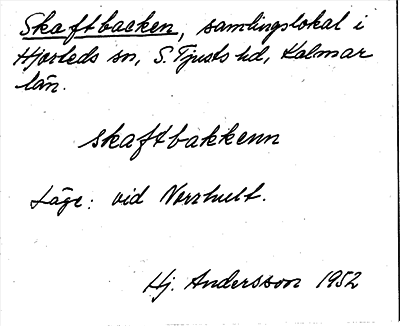 Skaftbacken, samlingslokal i
Hjorteds sn, S. Tjusts hd, Kalmar
län.
skaftbakkenn
Läge: vid Verrhult.
Hj. Andersson 1952